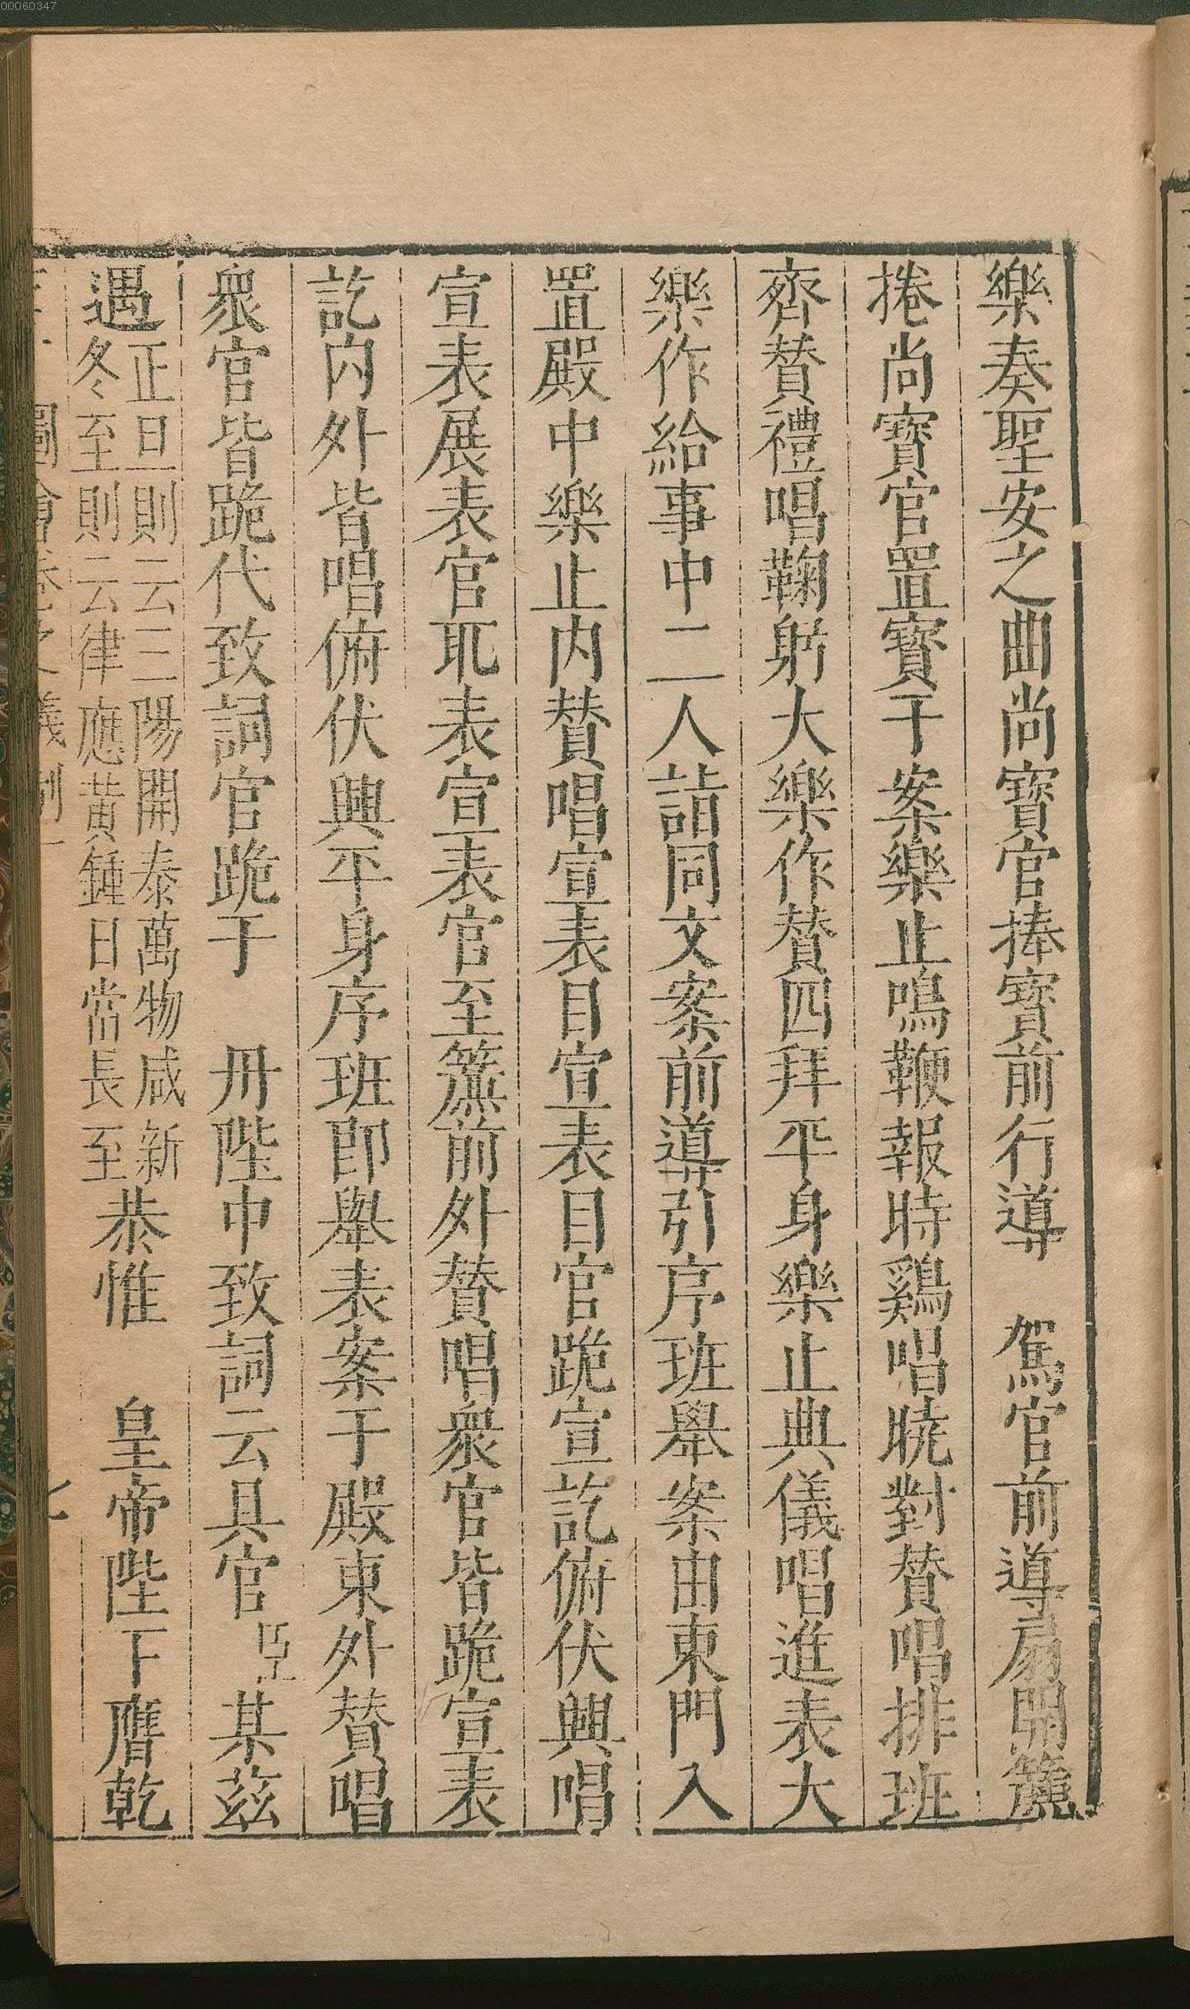 00060347
樂奏聖安之曲尚寶官捧寶前行導　駕官前導扇開簾
捲尚寶官置寳于案樂止鳴鞭報時鷄唱曉對贊唱排班
齊贊禮唱鞠躬大樂作贊四拜平身樂止典儀唱進表大
樂作給事中二人詣同文案前導引序班舉案由東門入
置殿中樂止内贊唱宣表目宣表目官跪宣訖俯伏興唱
宣表展表官取表宣表官至簾前外贊唱衆官皆跪宣表
訖内外皆唱俯伏興平身序班卽舉表案于殿東外贊唱
衆官皆跪代致詞官跪于　丹陛中致詞云具官臣某茲
遇
正旦則云三陽開泰萬物咸新
冬至則云律應黃鍾日當長至
恭惟　皇帝陛下膺乾
圖會卷之儀制一
七